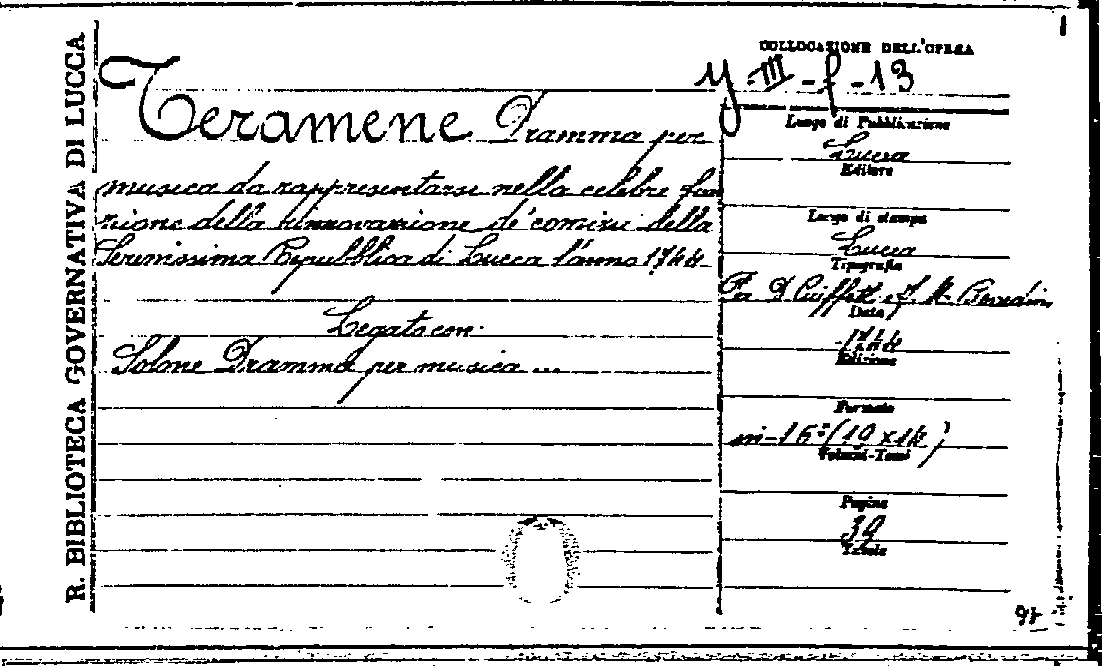 R. BIBLIOTECA GOVERNATIVA DI LUCCA
Teramene Dramma per
musica da rappresentarsi nella celebre fun
zione della rinnovazione de' comizi della
Serenissima Repubblica di Lucca l'anno 1744
Legato con:
Solone Dramma per musica ...
COLLOCAZIONE DELL'OPERA
y - III - f - 13
Luogo di Pubblicazione
Lucca
Editore
Luogo di stampa
Lucca
Tipografia
D. Ciuffetti
Data
1744
Edizione
Formato
in-16° (19 x 14)
Volumi-Tomi
Pagine
39
Tavole